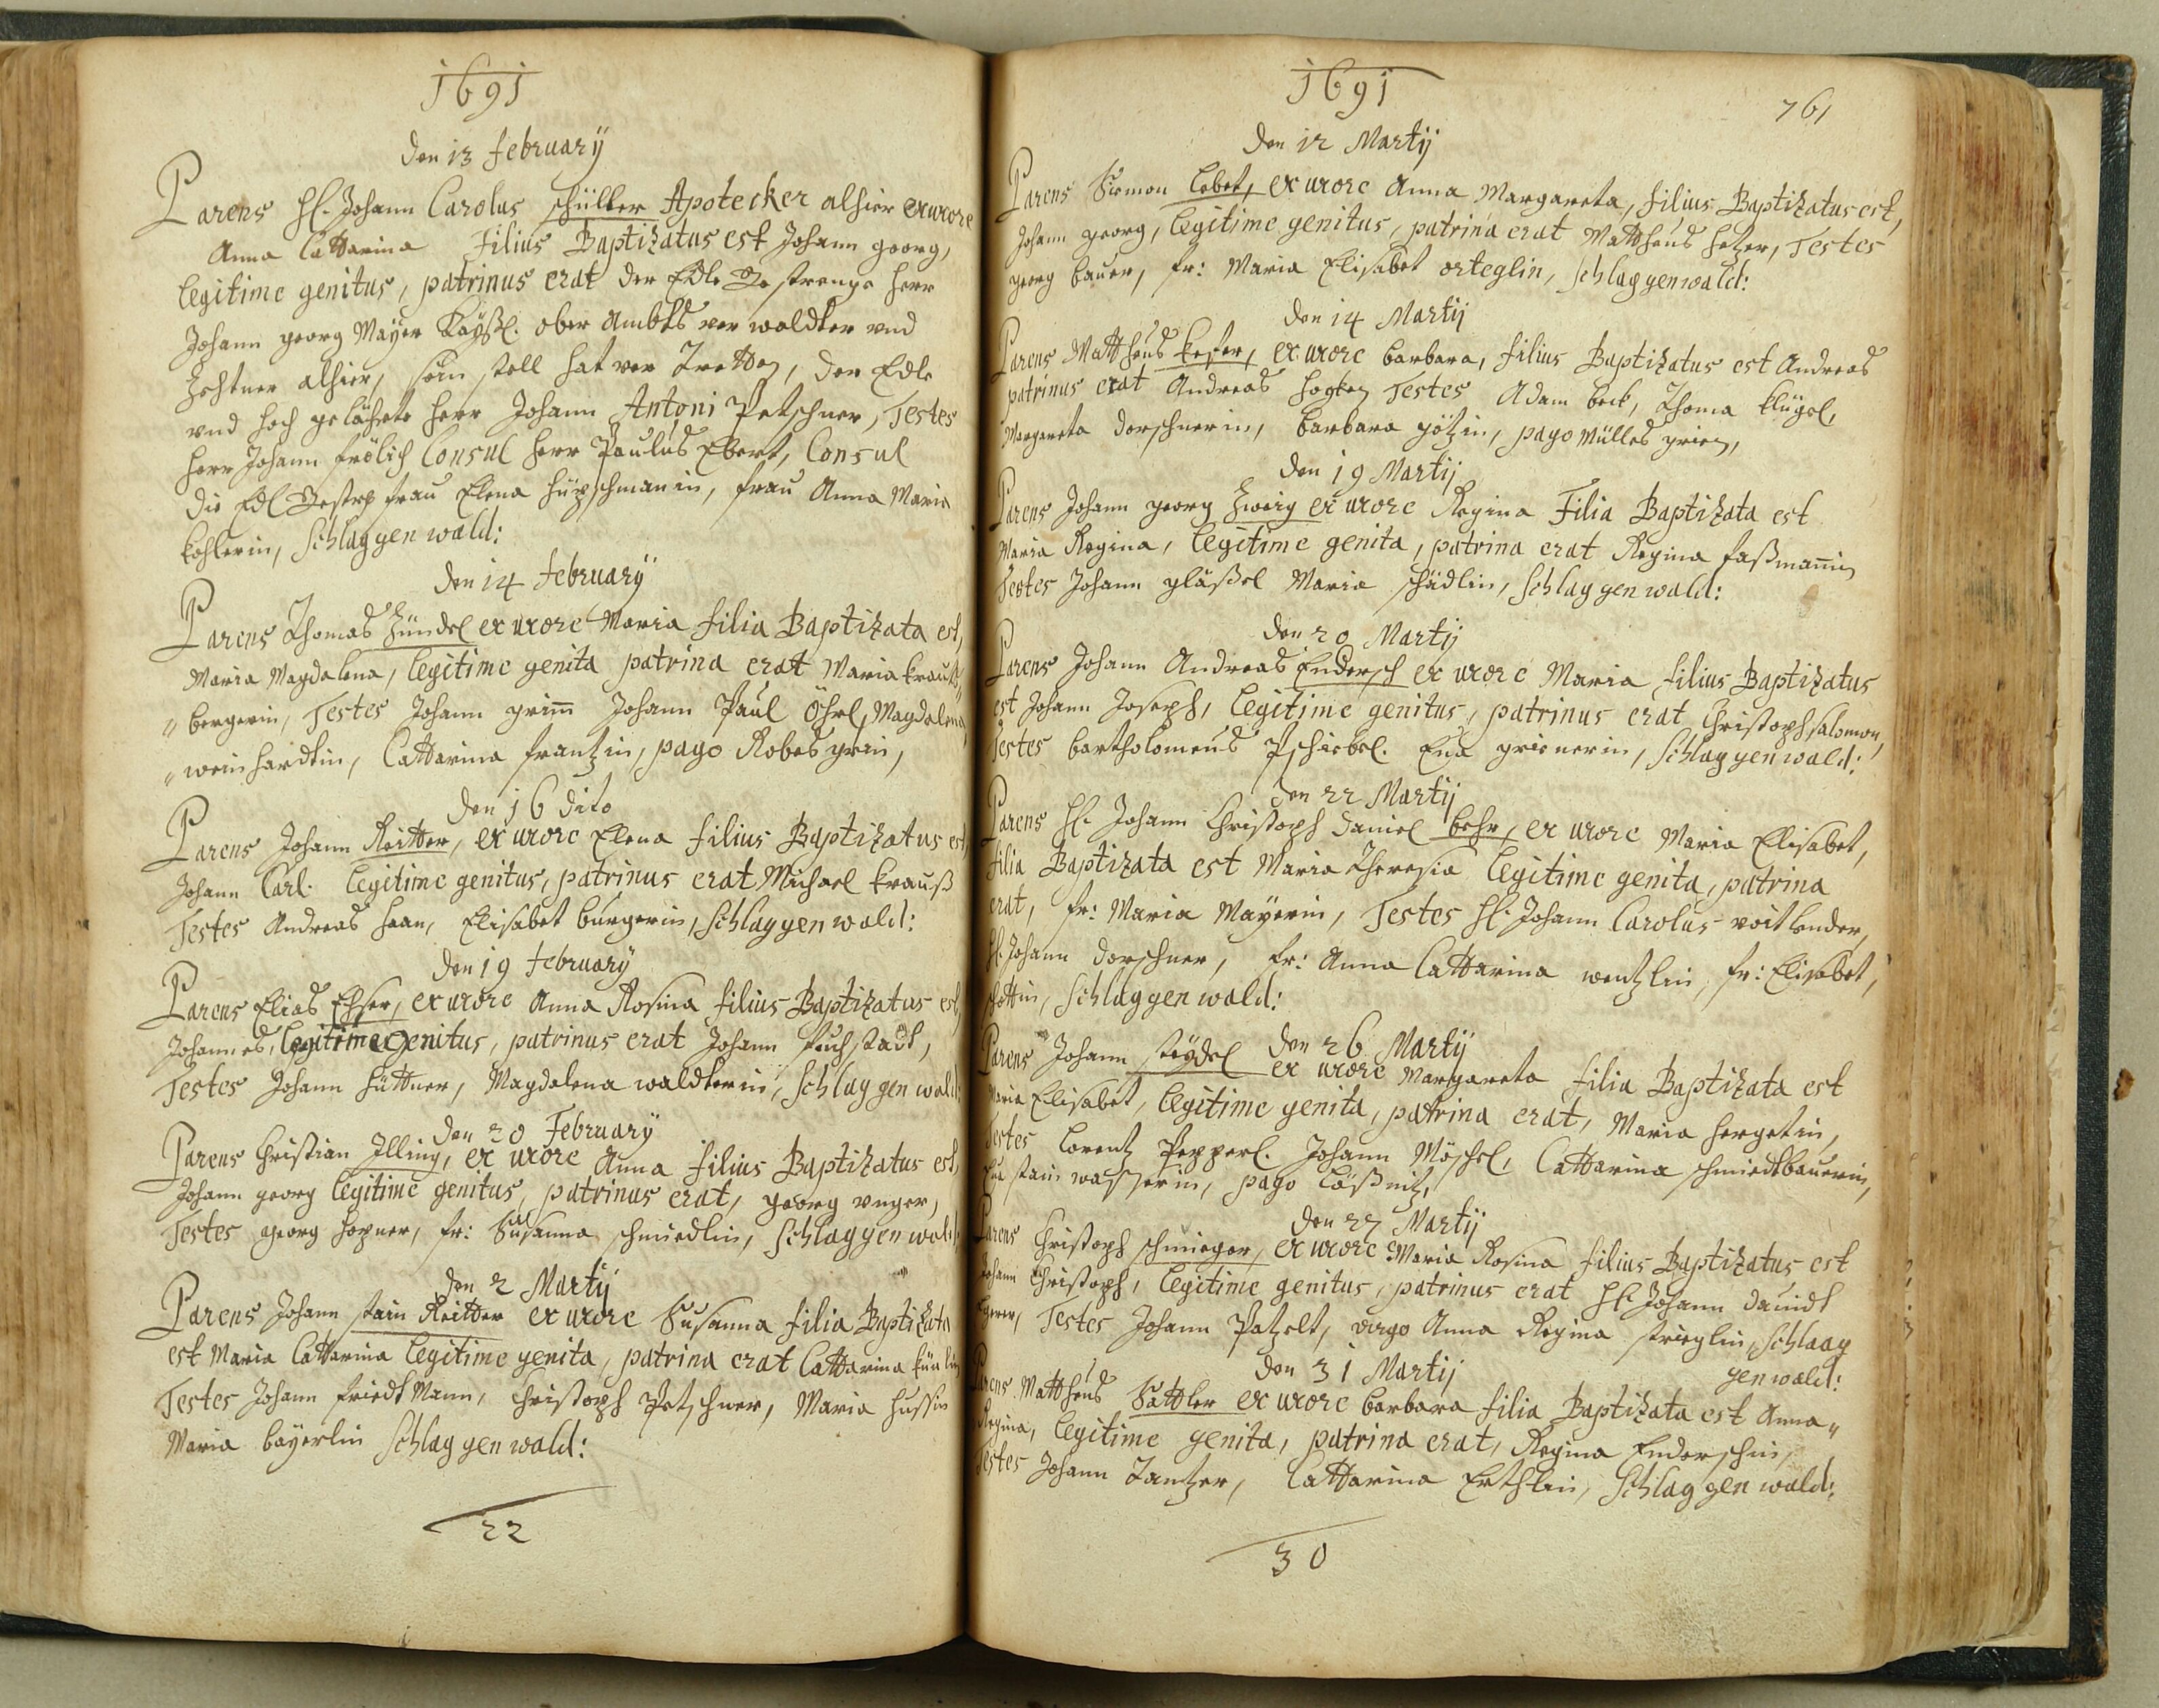 1691
den 13 February
Parens H. Johann Carolus schüller Apotecker alhier ex uxore
Anna Cattarina Filius Baptizatus est Johann georg,
legitime genitus, patrinus erat der Edle Gestrenge Herr
Johann georg Mayer Kayßl. ober Ambts ver waldter vnd
Zehtner alhier, sein stell hat ver Tretten, der Edle
vnd hoch gelährte Herr Johann Antoni Petschner, Testes
Herr Johann frölich Consul Herr Paulus Ebert, Consul
die Edl Gestrg frau Elena Hüpschmanin, frau Anna Maria
kohlerin, Schlaggen wald:
den 14 February
Parens Thomas Zündel ex uxore Maria filia Baptizata est,
Maria Magdalena, legitime genita patrina erat Maria krauß
bergerin, Testes Johann grim̄ Johann Paul Öhrl, Magdalena
weinhardtin, Cattarina frantzin, pago Robes grün,
den 16 dito
Parens Johann Reitter, ex uxore Elena filius Baptizatus est
Johann Carl. legitime genitus, patrinus erat Michael krauß
Testes Andreas haan, Elisabet burgerin, Schlaggen wald:
den 19 February
Parens Elias Ehser, ex uxore Anna Rosina filius Baptizatus est,
Johannes, legitime genitus, patrinus erat Johann
Testes Johann Hüttner, Magdalena waldterin, Schlaggen wald
den 20 February
Parens Christian Illing, ex uxore Anna filius Baptizatus est,
Johann georg legitime genitus, patrinus erat, georg vnger,
Testes georg Hopner, fr: Susanna schmiedlin, Schlaggen wald,
den 2 Martij
Parens Johann stain Reitter ex uxore Susanna filia Baptizata
est Maria Cattarina legitime genita, patrina erat Cattarina
Testes Johann friedt Mann, Christoph Petschner, Maria hussin
Maria bayerlin Schlaggen wald:
22
1691
761
den 12 Martij
Parens Siemon lobet, ex uxore Anna Margareta, filius Baptizatus est,
Johann georg, legitime genitus, patrina erat Mattheus hetzer, Testes
georg bauer, fr: Maria Elisabet orteglin, Schlaggenwald:
den 14 Martij
Parens Mattheus kester, ex uxore barbara, filius Baptizatus est Andreas
patrinus erat Andreas Testes Adam beck, Thoma klügel,
Margareta dorschnerin, barbara götzin, pago Mülles grün,
den 19 Martij
Parens Johann georg Zweig ex uxore Regina Filia Baptizata est
Maria Regina, legitime genita, patrina erat Regina faßman̄in
Testes Johann gläßel Maria schädlin, Schlaggen wald:
den 20 Martij
Parens Johann Andreas Endersch ex uxore Maria filius Baptizatus
est Johann Joseph, legitime genitus, patrinus erat Christoph salomon,
Testes bartholomeus Pschiebel. Eua grienerin, Schlaggen wald:
den 22 Martij
Parens H. Johann Christoph daniel behr, ex uxore Maria Elisabet,
filia Baptizata est Maria Theresia legitime genita, patrina
erat, fr: Maria Mayerin, Testes H. Johann Carolus voitlender,
H. Johann dorschner, fr: Anna Cattarina wentzlin, fr: Elisabet,
schottin, Schlaggen wald:
den 26 Martij
Parens Johann staydel ex uxore Margareta filia Baptizata est
Maria Elisabet, legitime genita, patrina erat, Maria hergetin,
Testes lorentz Pepperl. Johann Möschel, Cattarina schmiedtbauerin,
Eua stain wasserin, pago Läßnitz,
den 27 Martij
Parens Christoph schmieger, ex uxore Maria Rosina filius Baptizatus est
Johann Christoph, legitime genitus, patrinus erat H. Johann dauidt
Egerer, Testes Johann Patzelt, virgo Anna Regina strieglin, Schlaag
gen wald:
den 31 Martij
Parens Mattheus Sattler ex uxore barbara filia Baptizata est Anna
Regina, legitime genita, patrina erat, Regina Enderschin,
Testes Johann Tantzer, Cattarina Erthlin, Schlaggen wald:
30